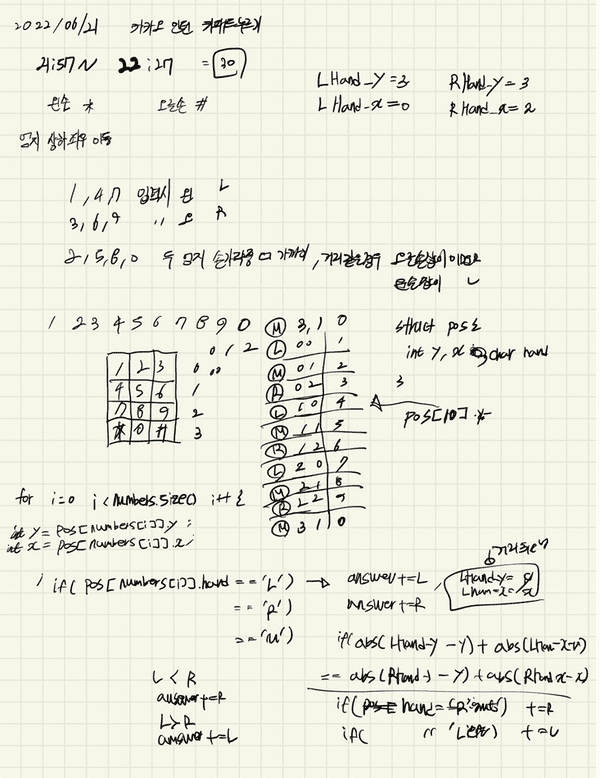 2022/06/21 카카오 인턴 키패드누르기
21:57 ~ 22:27 = 30
왼손 * 오른손 #
LHand_Y=3 RHand_Y=3
LHand_x=0 RHand_x=2
엄지 상하좌우 이동
1,4,7 입력시 왼 L
3,6,9 〃 오 R
2,5,8,0 두 엄지 손가락중 더 가까이, 거리같은경우
L
1 2 3 4 5 6 7 8 9 0
0 1 2
1 2 3 0
4 5 6 1
7 8 9 2
* 0 # 3
M 3,1 0
L 0 0 1
M 0 1 2
R 0 2 3
L 1 0 4
M 1 1 5
R 1 2 6
L 2 0 7
M 2 1 8
R 2 2 9
M 3 1 0
struct pos {
int y, x char hand
}
pos[10]
for i=0 i<numbers.size() i++ {
int y = pos[numbers[i]].y;
int x = pos[numbers[i]].x;
if( pos[numbers[i]].hand == 'L') → answer+=L
== 'R') answer+=R
== 'M')
LHand-y= y
LHan-x= x
if(abs(LHand-y -y)+ abs(LHan-x-x)
== abs(RHand-y -y)+abs(RHand-x-x)
if( hand= ) +=R
if( 〃 'Left') +=L
L < R
answer+=R
L > R
answer+=L